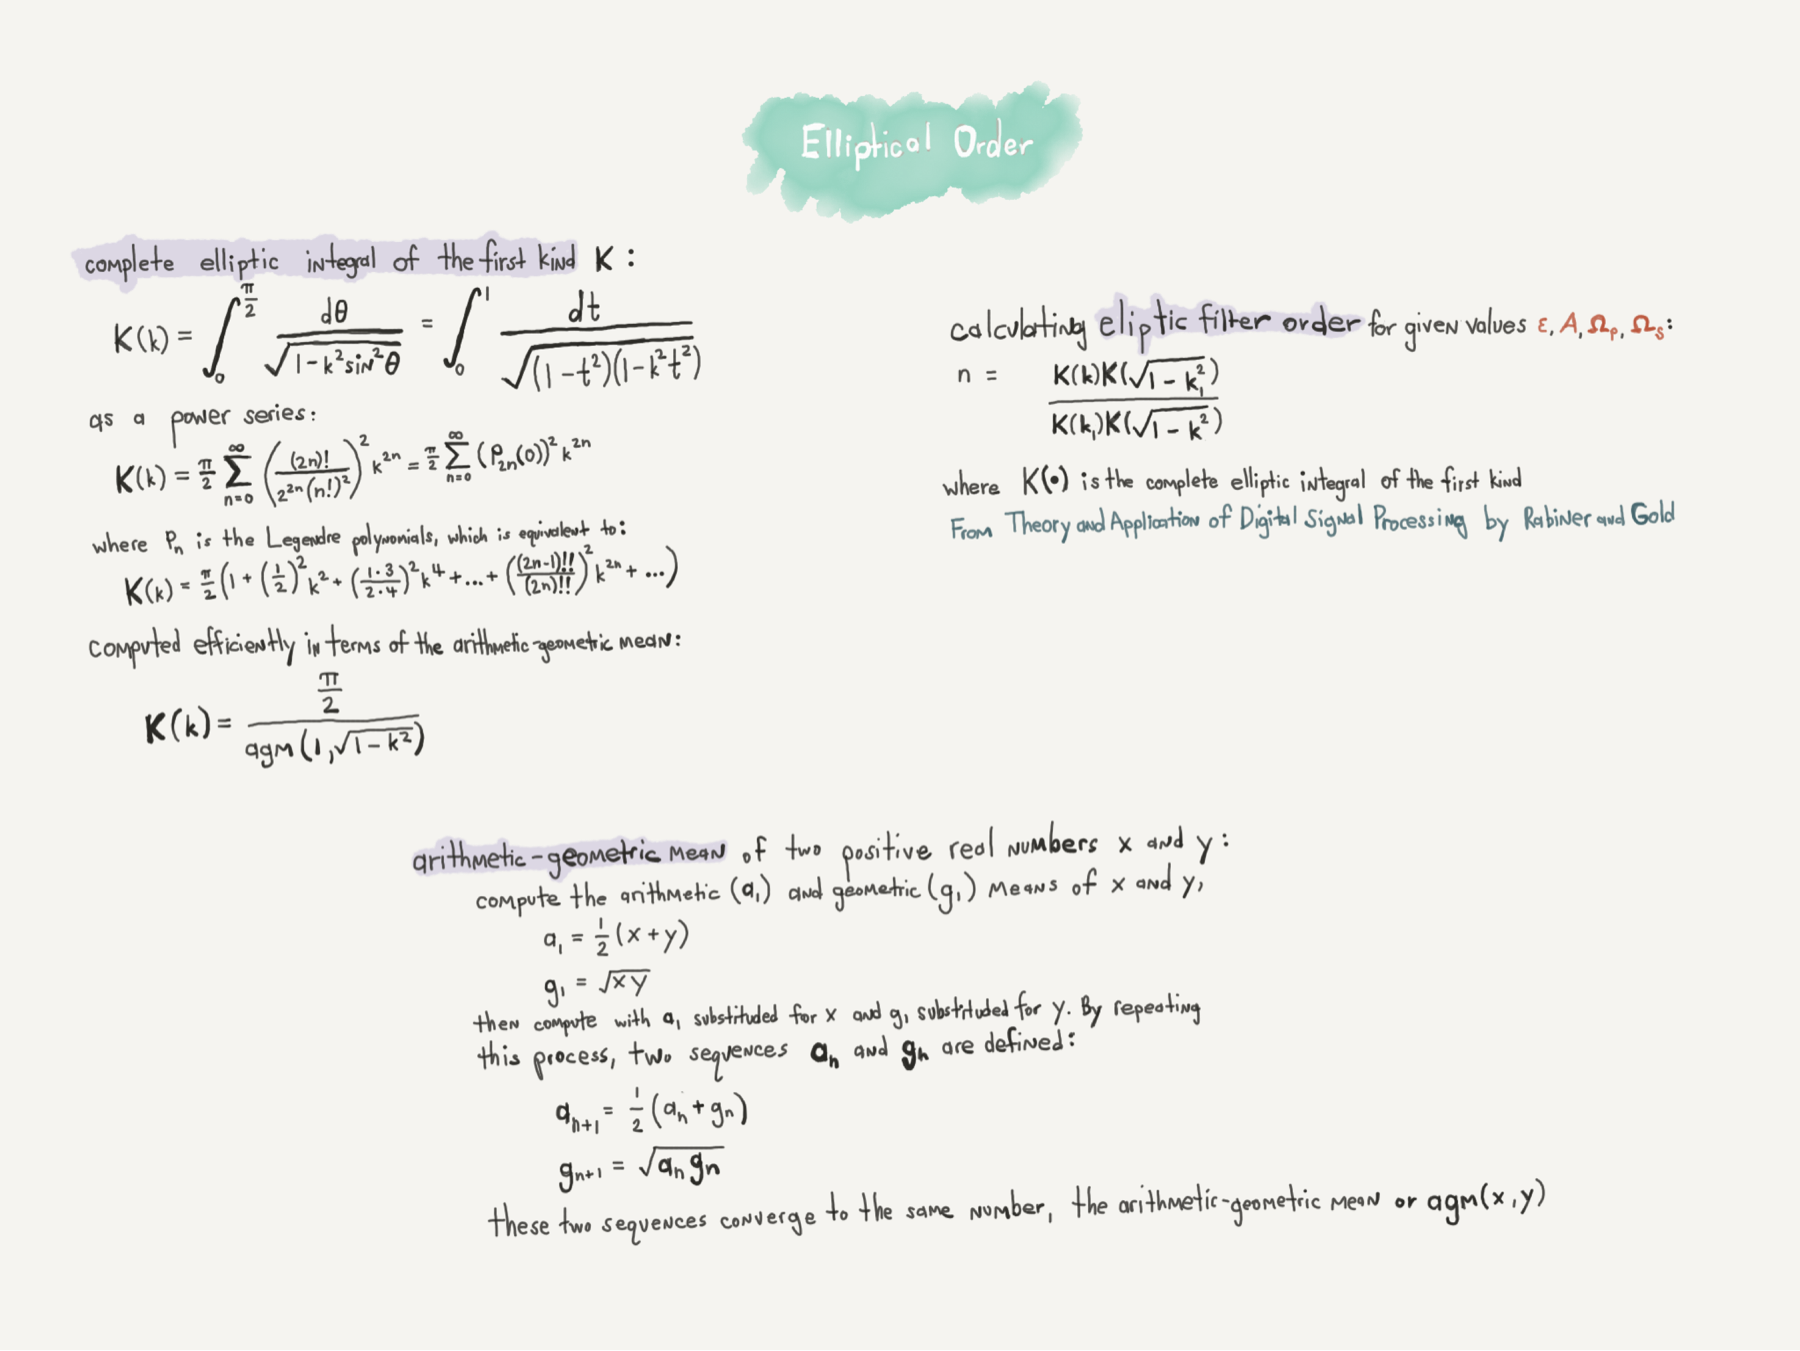 Elliptical Order
complete elliptic integral of the first kind K:
K(k) = ∫₀^(π/2) dθ / √(1-k² sin²θ) = ∫₀^1 dt / √((1-t²)(1-k²t²))
as a power series:
K(k) = π/2 ∑_{n=0}^∞ ((2n)! / (2^{2n}(n!)²))² k^{2n} = π/2 ∑_{n=0}^∞ (P_{2n}(0))² k^{2n}
where Pₙ is the Legendre polynomials, which is equivalent to:
K(k) = π/2 (1 + (1/2)² k² + (1·3 / 2·4)² k⁴ + ... + ((2n-1)!! / (2n)!!)² k^{2n} + ...)
computed efficiently in terms of the arithmetic-geometric mean:
K(k) = (π/2) / agm(1, √(1-k²))
calculating eliptic filter order for given values ε, A, Ωₚ, Ωₛ:
n = K(k)K(√(1-k₁²)) / K(k₁)K(√(1-k²))
where K(•) is the complete elliptic integral of the first kind
From Theory and Application of Digital Signal Processing by Rabiner and Gold
arithmetic-geometric mean of two positive real numbers x and y:
compute the arithmetic (a₁) and geometric (g₁) means of x and y,
a₁ = 1/2 (x+y)
g₁ = √(xy)
then compute with a₁ substituted for x and g₁ substituted for y. By repeating
this process, two sequences aₙ and gₙ are defined:
aₙ₊₁ = 1/2 (aₙ + gₙ)
gₙ₊₁ = √(aₙ gₙ)
these two sequences converge to the same number, the arithmetic-geometric mean or agm(x,y)